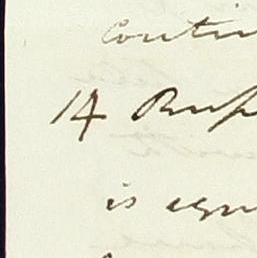 contin
14 Rup
is equ